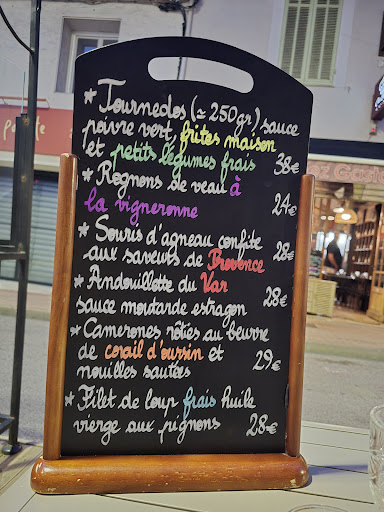 * Tournedos (≃ 250gr) sauce
poivre vert, frites maison
et petits légumes frais 38€
* Rognons de veau à
la vigneronne 24€
* Souris d'agneau confite
aux saveurs de Provence 28€
* Andouillette du Var
sauce moutarde estragon 28€
* Camerones rôties au beurre
de corail d'oursin et
nouilles sautées 29€
* Filet de loup frais huile
vierge aux pignons 28€